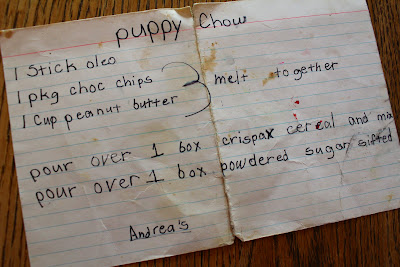 puppy Chow
1 Stick oleo
1 pkg choc chips
1 Cup peanut butter
melt together
pour over 1 box crispax cereal and
pour over 1 box powdered sugar sifted
Andrea's